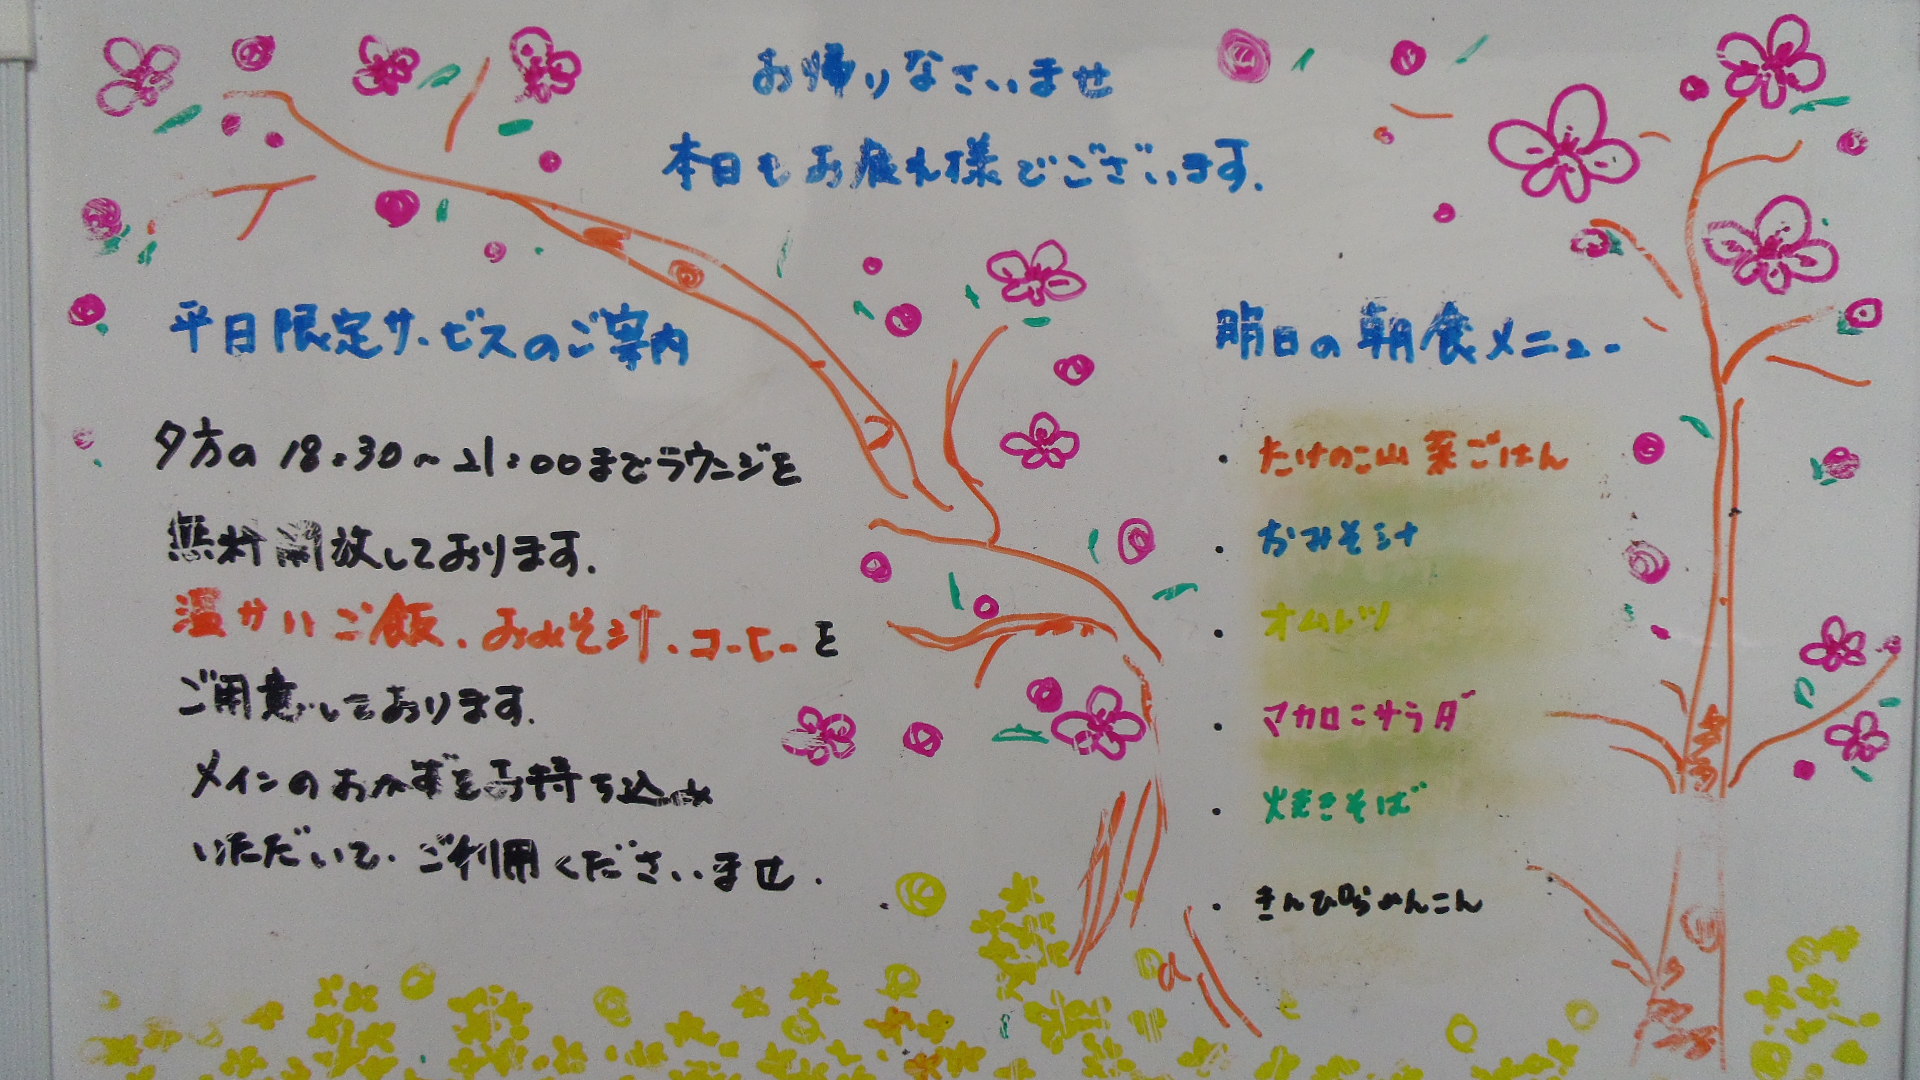 お帰りなさいませ
本日もお疲れ様でございます.
平日限定サービスのご案内
夕方の18:30~21:00までラウンジを
無料開放しております.
温かいご飯.おみそ汁.コーヒーを
ご用意しております.
メインのおかずをお持ち込み
いただいて.ご利用くださいませ.
明日の朝食メニュー
・たけのこ山菜ごはん
・おみそ汁
・オムレツ
・マカロニサラダ
・焼きそば
・きんぴられんこん